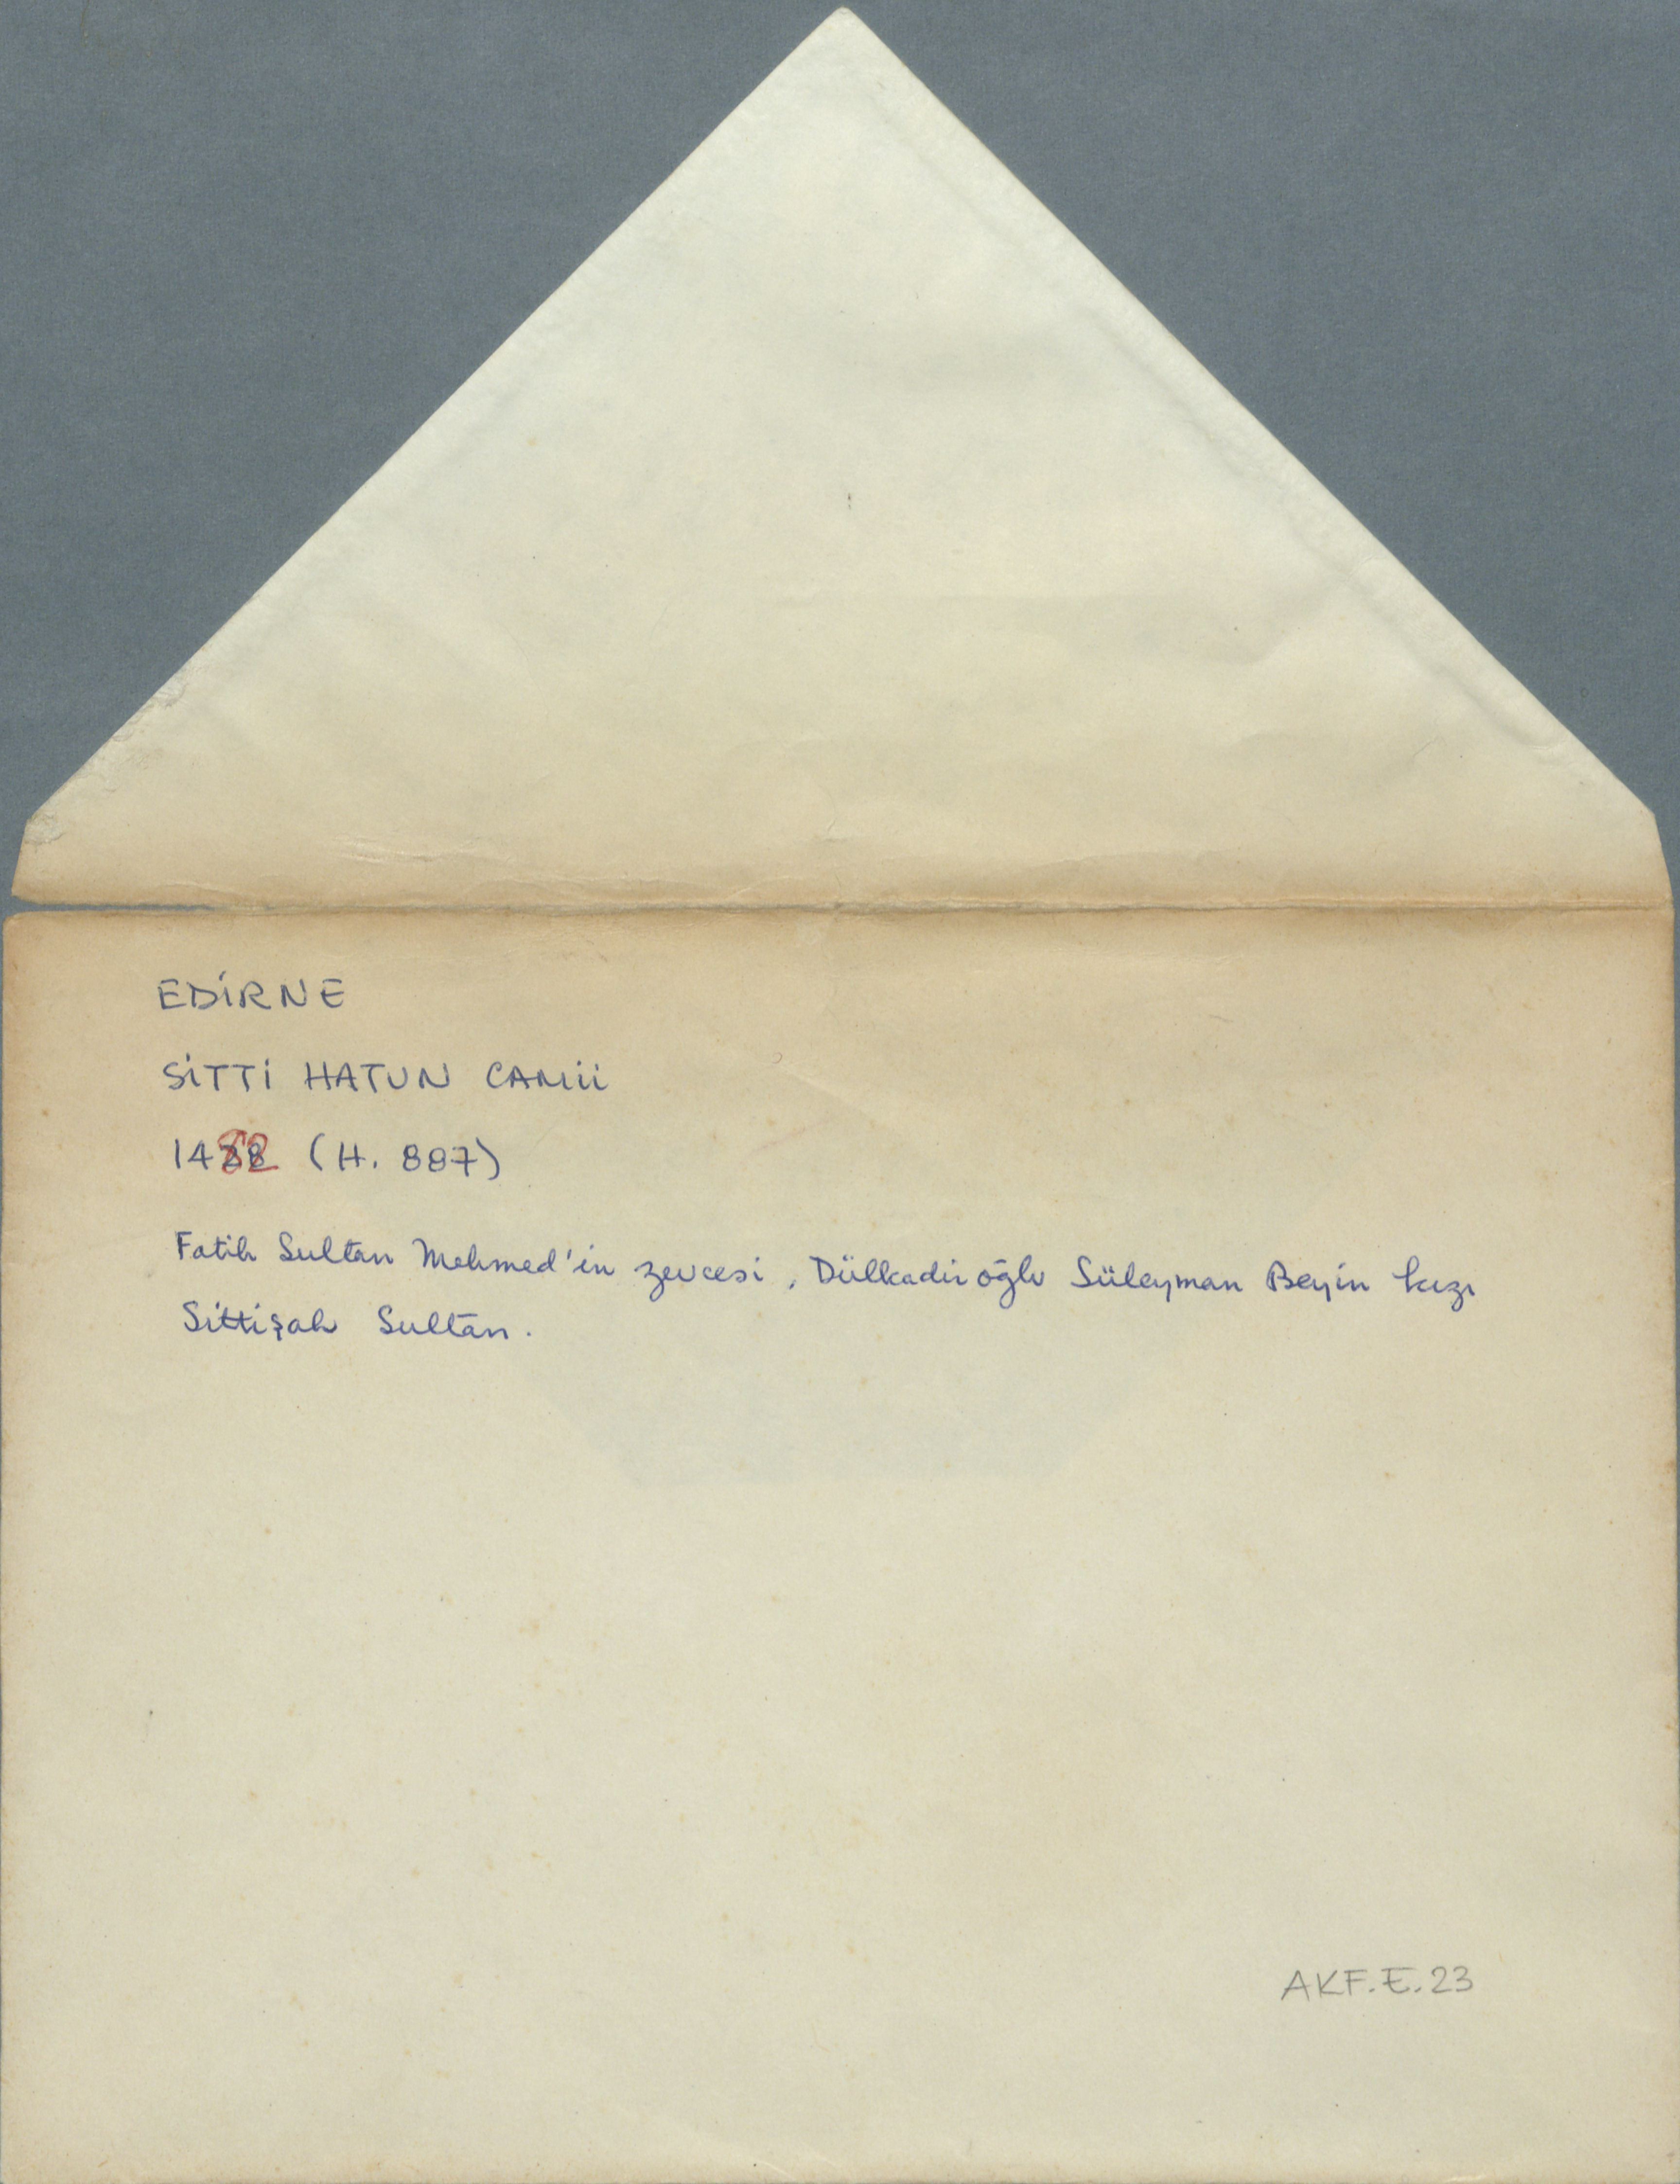 EDİRNE
SİTTİ HATUN CAMİİ
1482 (H. 887)
Fatih Sultan Mehmed'in zevcesi, Dülkadiroğlu Süleyman Beyin kızı
Sittişah Sultan.
AKF.E.23